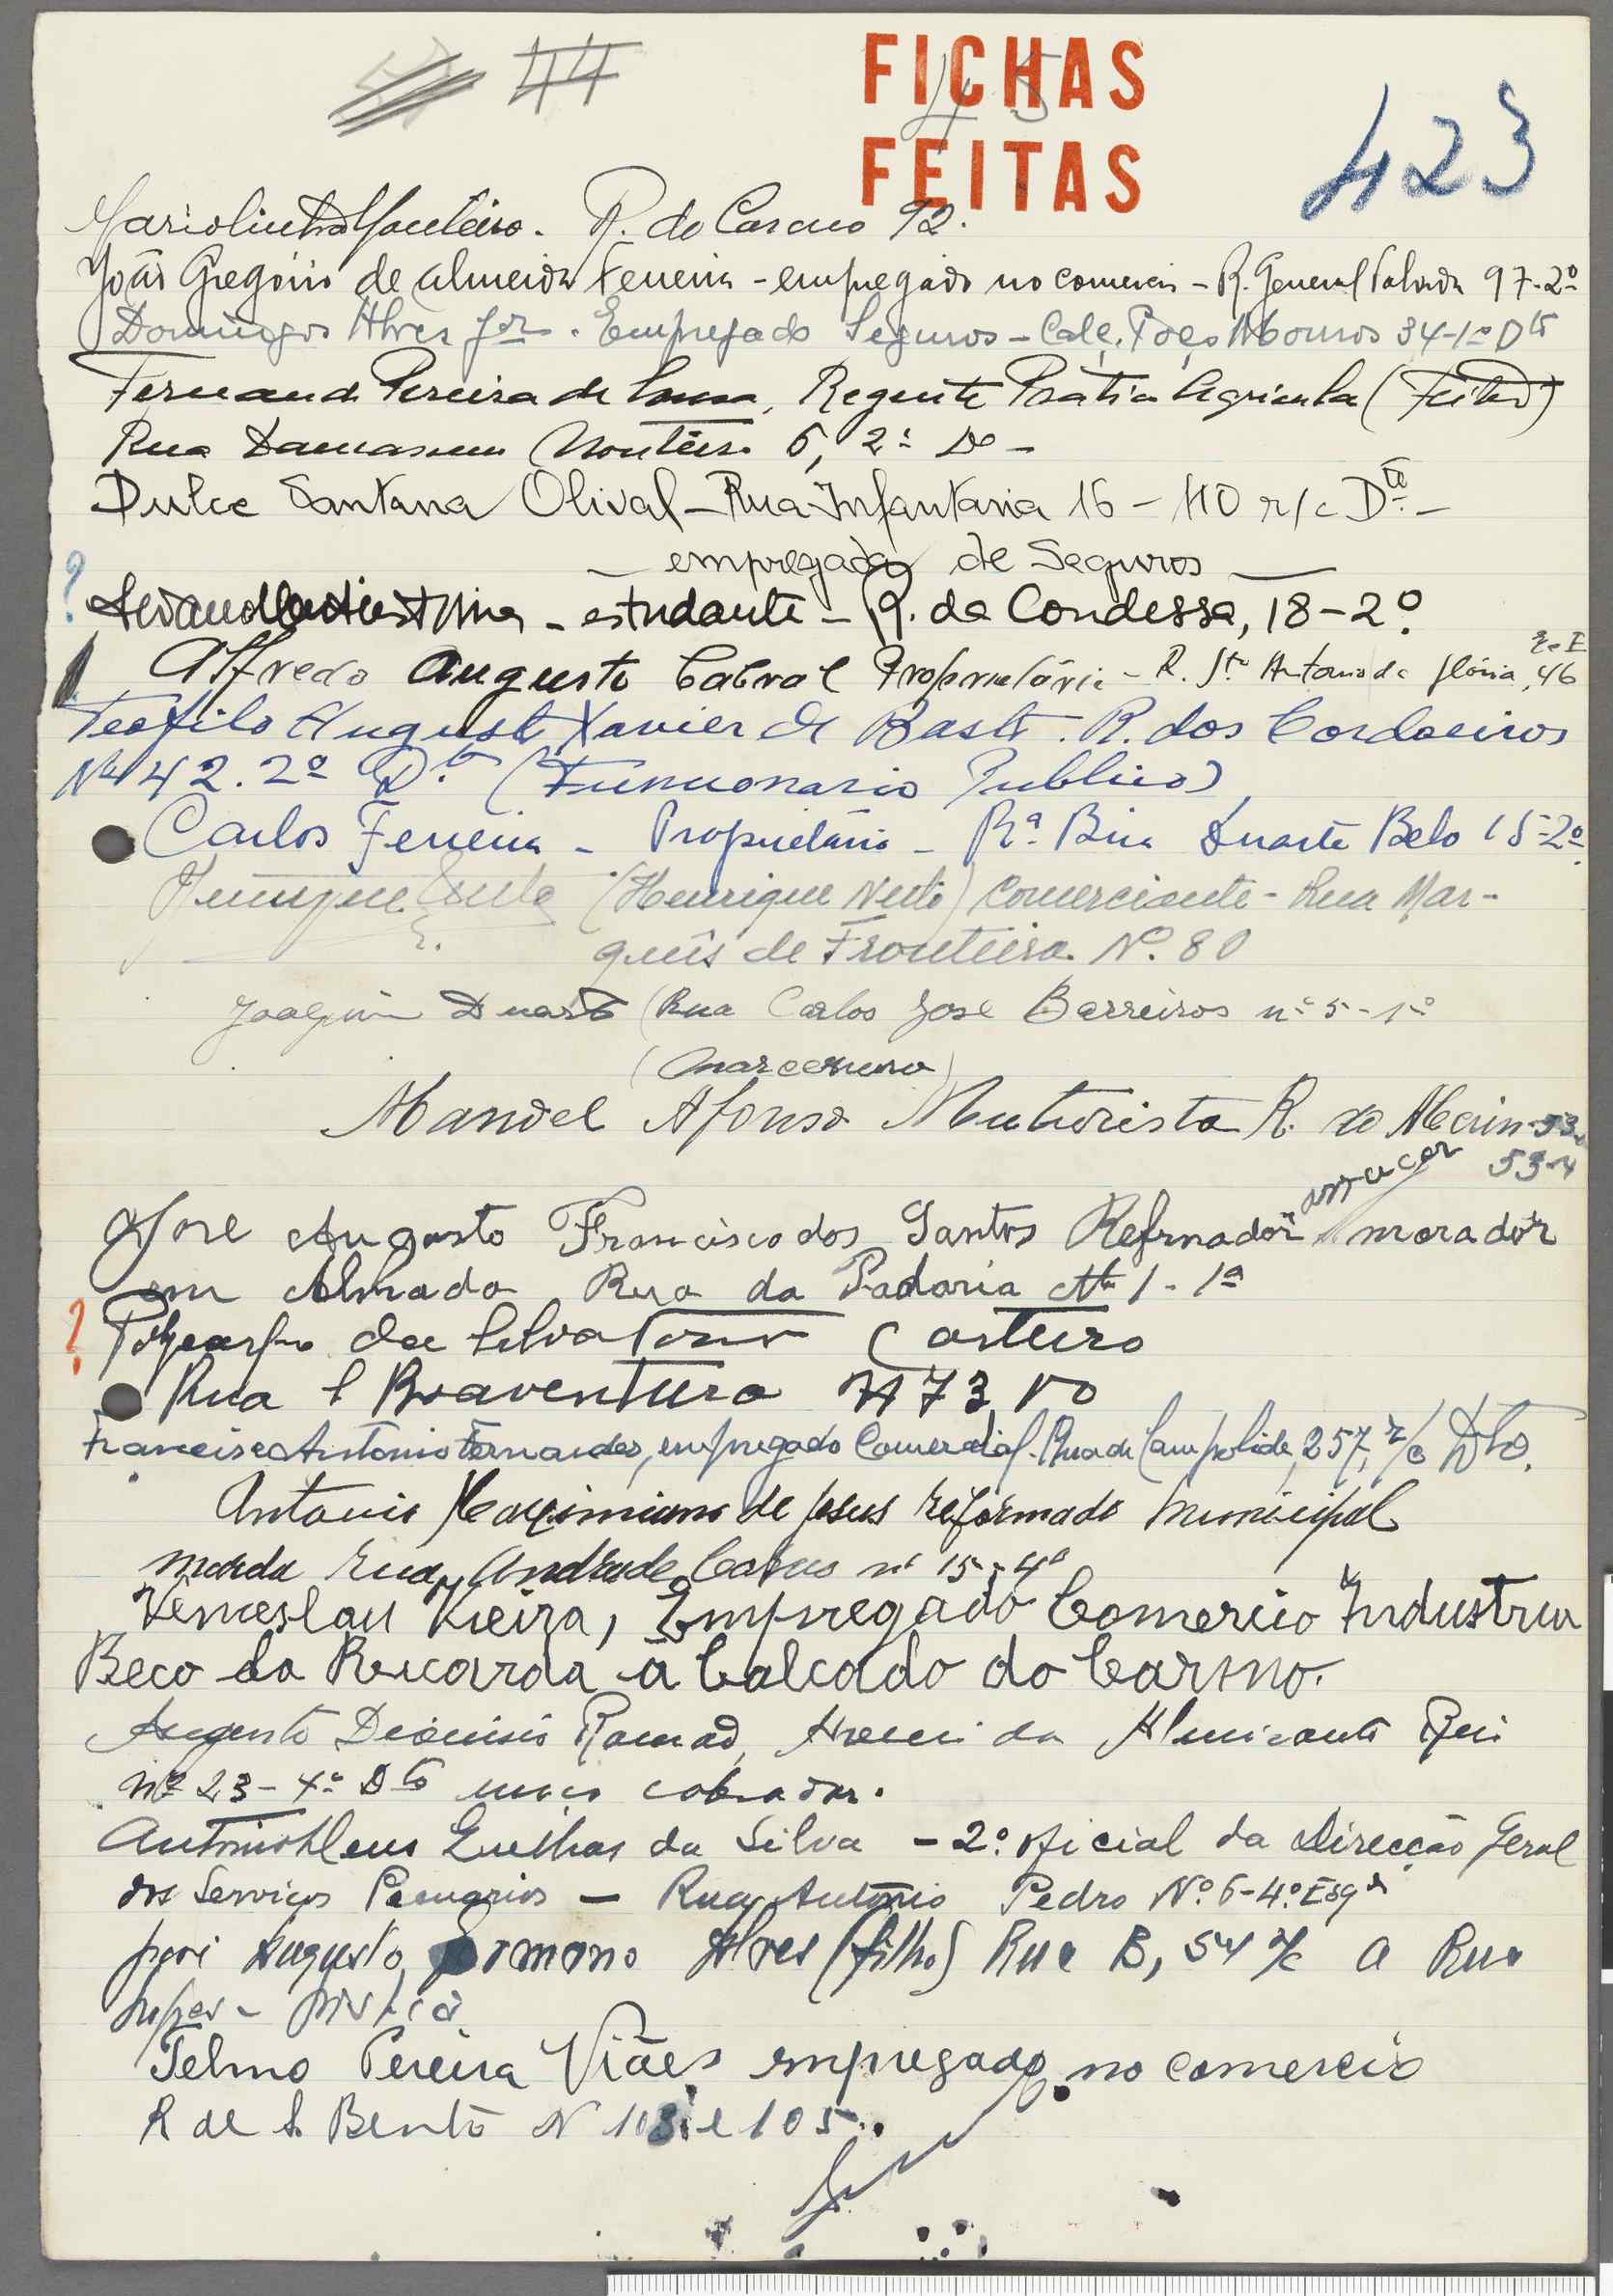 44
FICHAS
45
FEITAS
423
Monteiro. R. do Carmo 92.
João Gregório de Almeida Ferreira - empregado no comercio - R. General Taborda 97-2º
Domingos Alves Jor. Empregado Seguros - Calç. Poço Mouros 34-1º Dto
Fernando Pereira de Sousa, Regente Pratico Agricola (Feitor)
Rua Damasceno Monteiro 6, 2º De -
Dulce Santana Olival - Rua Infantaria 16 - 110 r/c Dto. -
- empregada de Seguros -
? - estudante - R. da Condessa, 18-2º
Alfredo Augusto Cabral Proprietário - R. Sto Antonio da Glória, 46
Teofilo Augusto Xavier de Basto. R. dos Cordoeiros
Nº 42. 2º Dto (Funcionario Publico)
Carlos Ferreira - Proprietário - Rª. Bica Duarte Belo 15-2º
(Henrique Neto) Comerciante - Rua Mar-
quês de Fronteira Nº. 80
Joaquim Duarte (Rua Carlos José Barreiros nº 5-1º
(Marceneiro)
Manoel Afonso Muturista R. do Merin-53
53-4
assucar
Jose Augusto Francisco dos Santos Refinador morador
em Almada Rua da Padaria Nº 1-1ª
? Policarpo da Silva Torres Carteiro
Rua S Boaventura Nº 73
Francisco Antonio Fernandes, empregado Comercial. Rua de Campolide, 257, r/c Dto.
Antonio Maximiano de Jesus reformado Municipal
morada rua Andrade Corvo nº 15-4º
Venceslau Vieira, Empregado Comercio Industria
Beco da Ricarda á Calcado do Carmo.
Augusto Dionisio Ramos, Avenida Almirante Reis
nº 23-4º Dto moço cobrador.
Antonio da Silva - 2º. oficial da Direcção Geral
dos Serviços Pecuarios - Rua António Pedro Nº. 6-4º. Esqº
José Augusto Romano Alves (filho) Rua B, 54 r/c a Rua
Telmo Pereira Viães empregado no comercio
R de S. Bento N 103 e 105.